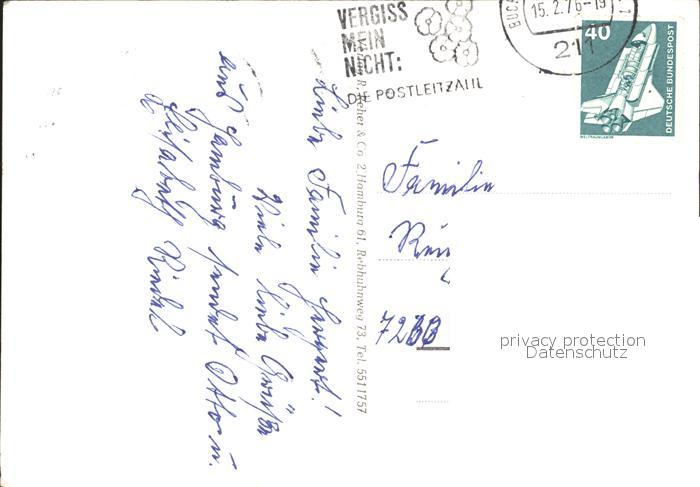 VERGISS
MEIN
NICHT:
DIE POSTLEITZAHL
15.2.76-19
211
40
DEUTSCHE BUNDESPOST
WELTRAUMLABOR
Liebe Familie
Viele liebe Grüße
aus Hamburg sendet Otto u.
Elisabeth
& Co 2 Hamburg 61, Rebhuhnweg 73, Tel. 5511757
Familie
72
privacy protection
Datenschutz